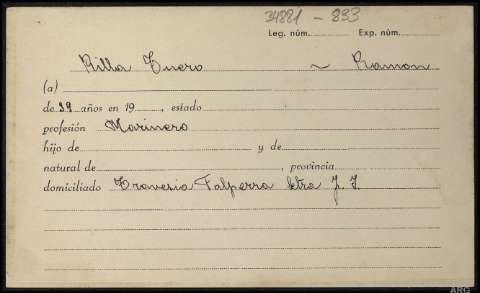 34881 - 833
Leg. núm. Exp. núm.
Rilla Tuero ~ Ramon
(a)
de 39 años en 19 , estado
profesión Marinero
hijo de y de
natural de , provincia
domiciliado Travesia Falperra letra J. J.
ARG